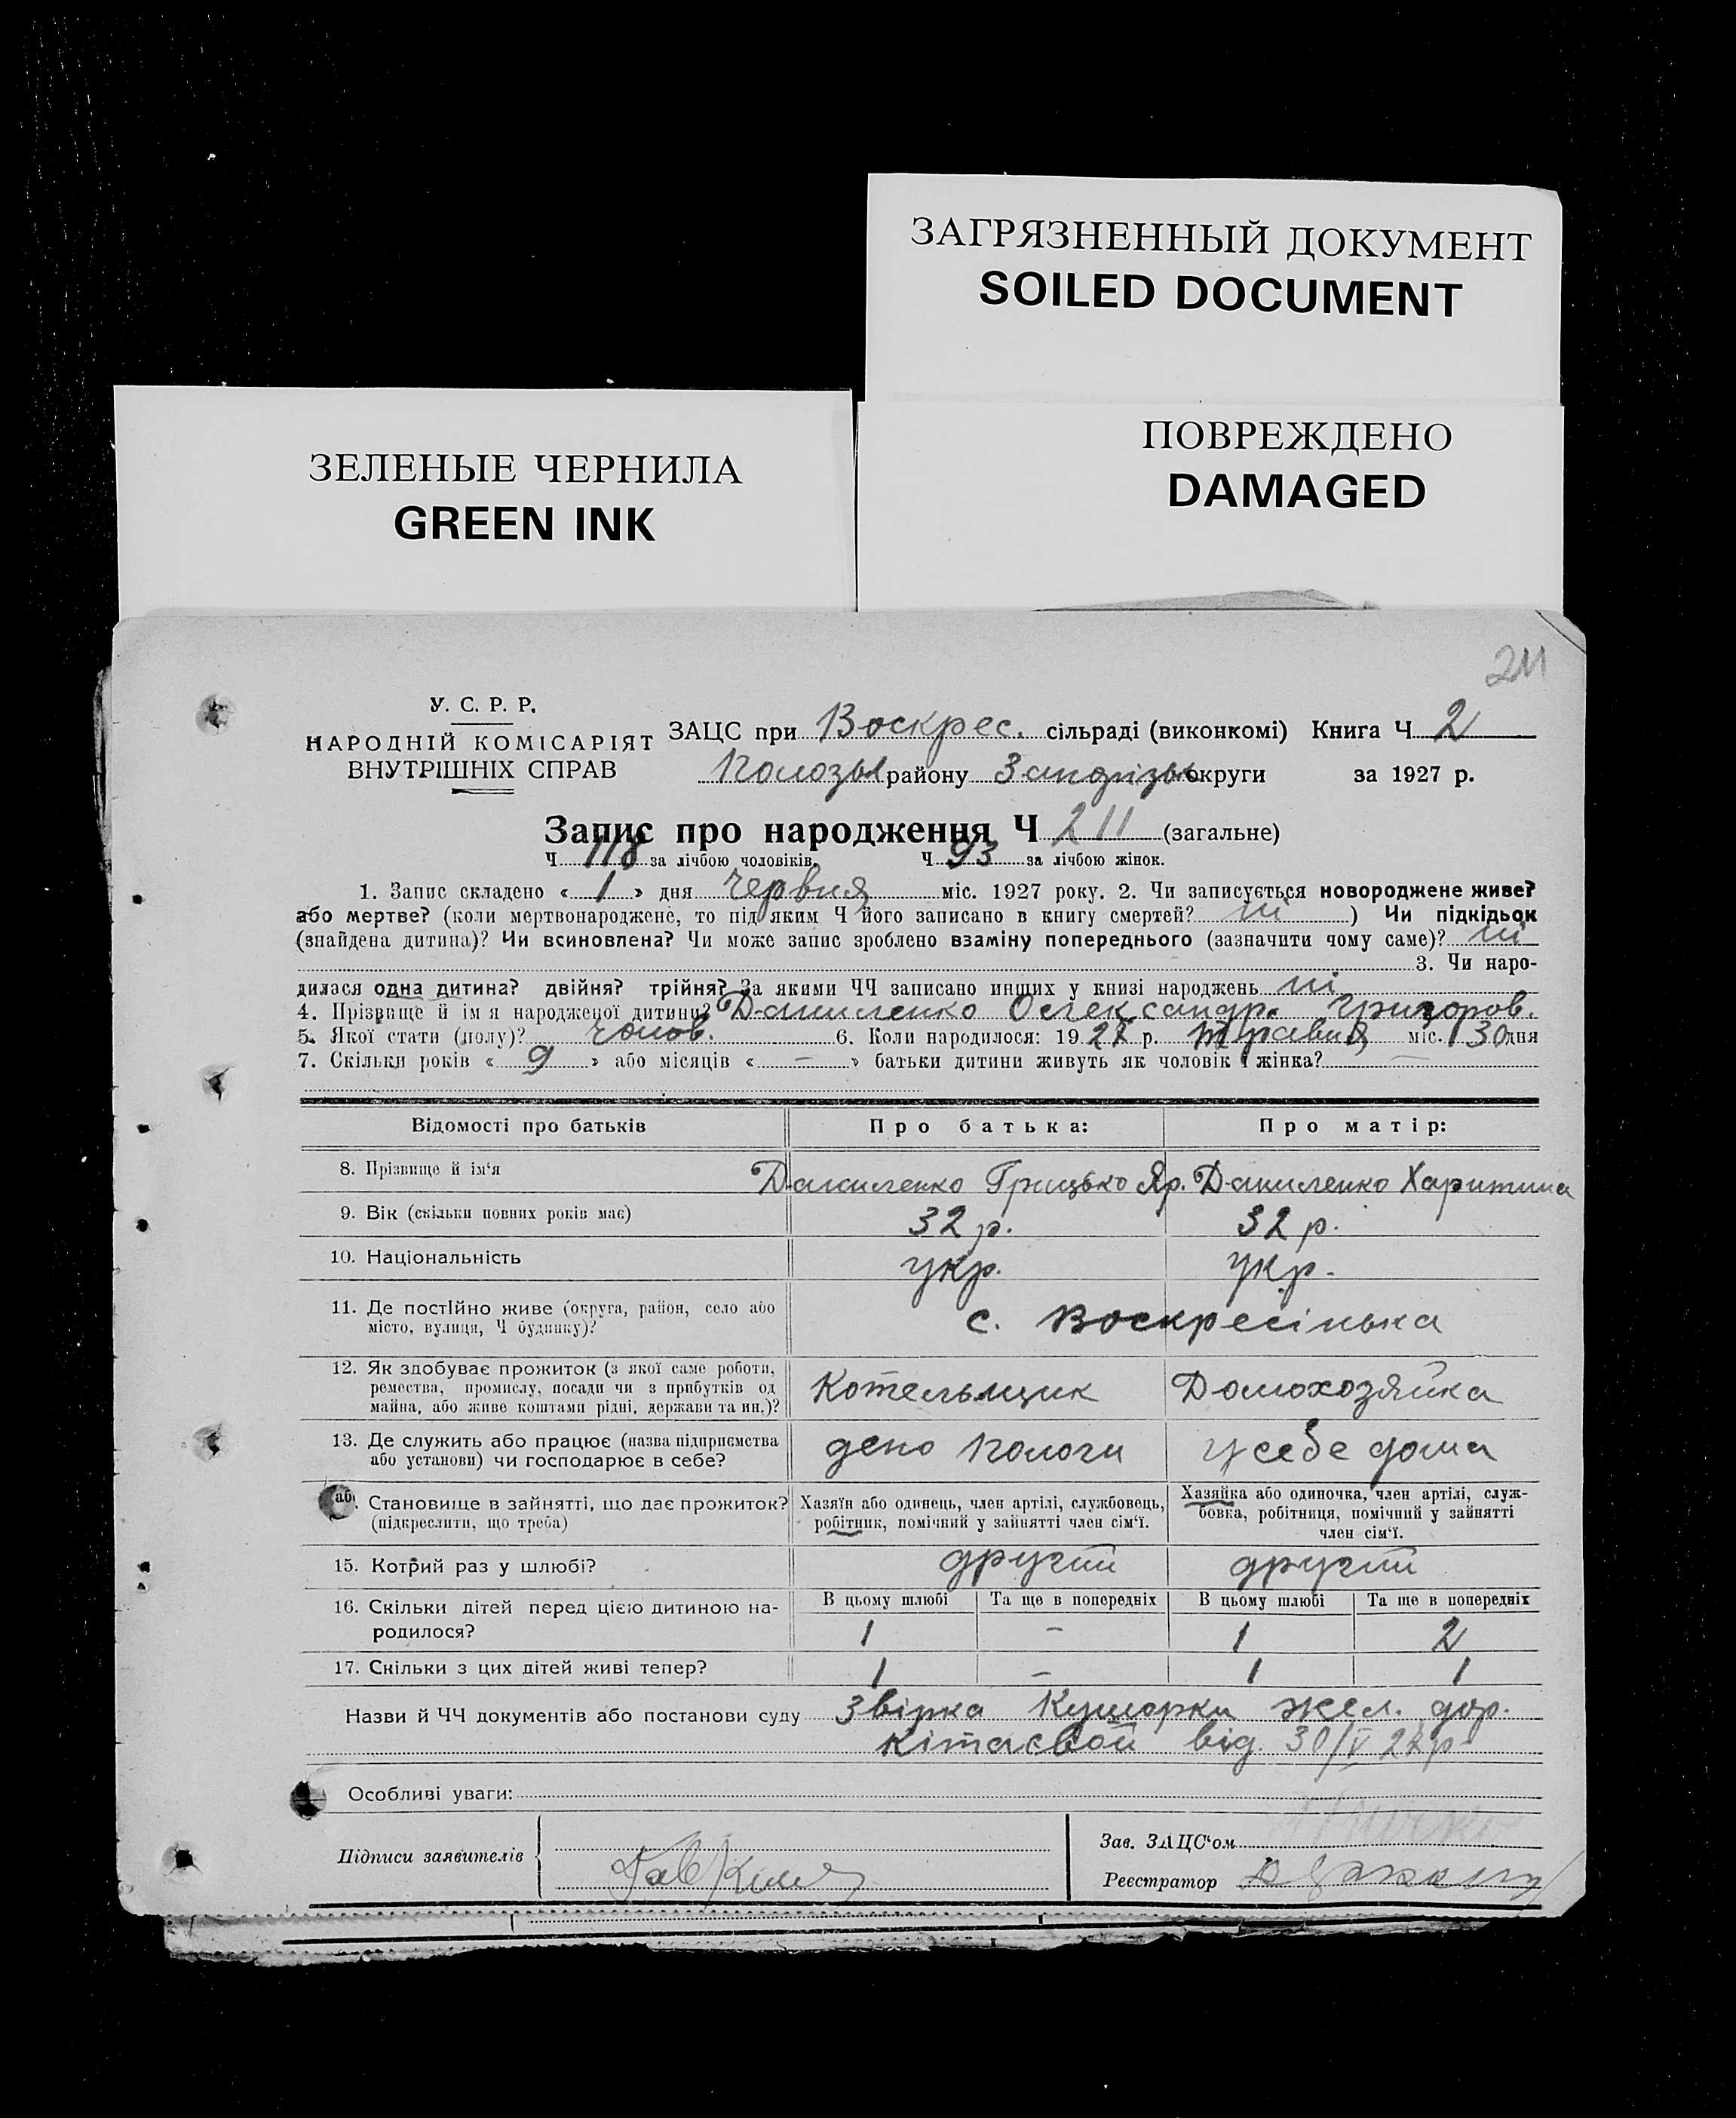 ЗАГРЯЗНЕННЫЙ ДОКУМЕНТ
SOILED DOCUMENT
ПОВРЕЖДЕНО
DAMAGED
ЗЕЛЕНЫЕ ЧЕРНИЛА
GREEN INK
211
У. С. Р. Р.
НАРОДНІЙ КОМІСАРІЯТ
ВНУТРІШНІХ СПРАВ
ЗАЦС при Воскрес. сільраді (виконкомі) Книга Ч 2
Пологы району Запоріз округи за 1927 р.
Запис про народження Ч 211 (загальне)
Ч 118 за лічбою чоловіків. Ч 93 за лічбою жінок.
1. Запис складено « 1 » дня червня міс. 1927 року. 2. Чи записується новороджене живе?
або мертве? (коли мертвонароджене, то під яким Ч його записано в книгу смертей? ні ) Чи підкідьок
(знайдена дитина)? Чи всиновлена? Чи може запис зроблено взаміну попереднього (зазначити чому саме)? ні
3. Чи наро-
дилася одна дитина? двійня? трійня? За якими ЧЧ записано инших у книзі народжень ні
4. Прізвище й ім'я народженої дитини? Даниленко Олександр. Григоров.
5. Якої стати (полу)? чолов. 6. Коли народилося: 1927 р. травня міс. 30 дня
7. Скільки років « 9 » або місяців « — » батьки дитини живуть як чоловік і жінка? —
Відомості про батьків Про батька: Про матір:
8. Прізвище й ім'я Даниленко Грицько Яр. Даниленко Харитина
9. Вік (скільки повних років має) 32 р. 32 р.
10. Національність укр. укр.
11. Де постійно живе (округа, район, село або
місто, вулиця, Ч будинку)? с. Воскресінька
12. Як здобуває прожиток (з якої саме роботи,
ремества, промислу, посади чи з прибутків од
майна, або живе коштами рідні, держави та ин.)? Котельщик Домохозяйка
13. Де служить або працює (назва підприємства
або установи) чи господарює в себе? депо Пологи у себе дома
Становище в зайнятті, що дає прожиток?
(підкреслити, що треба)
Хазяїн або одинець, член артілі, службовець,
робітник, помічний у зайнятті член сім'ї.
Хазяйка або одиночка, член артілі, служ-
бовка, робітниця, помічний у зайнятті
член сім'ї.
15. Котрий раз у шлюбі? другий другий
16. Скільки дітей перед цією дитиною на-
родилося?
В цьому шлюбі Та ще в попередніх В цьому шлюбі Та ще в попередніх
1 – 1 2
17. Скільки з цих дітей живі тепер? 1 – 1 1
Назви й ЧЧ документів або постанови суду жел. дор.
від 30/V 27 р
Особливі уваги:
Підписи заявителів
Зав. ЗАЦС'ом
Реєстратор